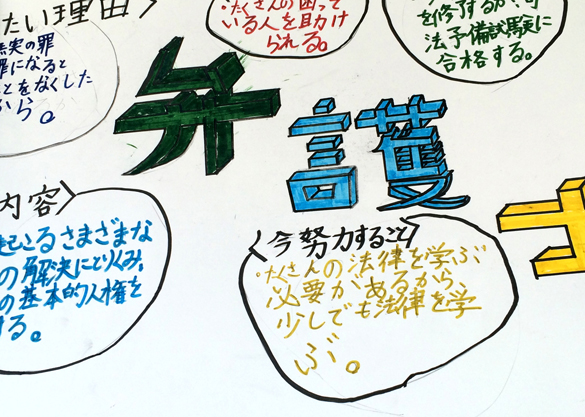 たい理由〉
無実の罪
罪になると
ことをなくした
から。
・たくさんの困って
いる人を助け
られる。
を修了するか、司
法予備試験に
合格する。
弁護士
内容〉
起こるさまざまな
の解決にとりくみ、
の基本的人権を
する。
〈今努力すること〉
・たくさんの法律を学ぶ
必要があるから、
少しでも法律を学
ぶ。